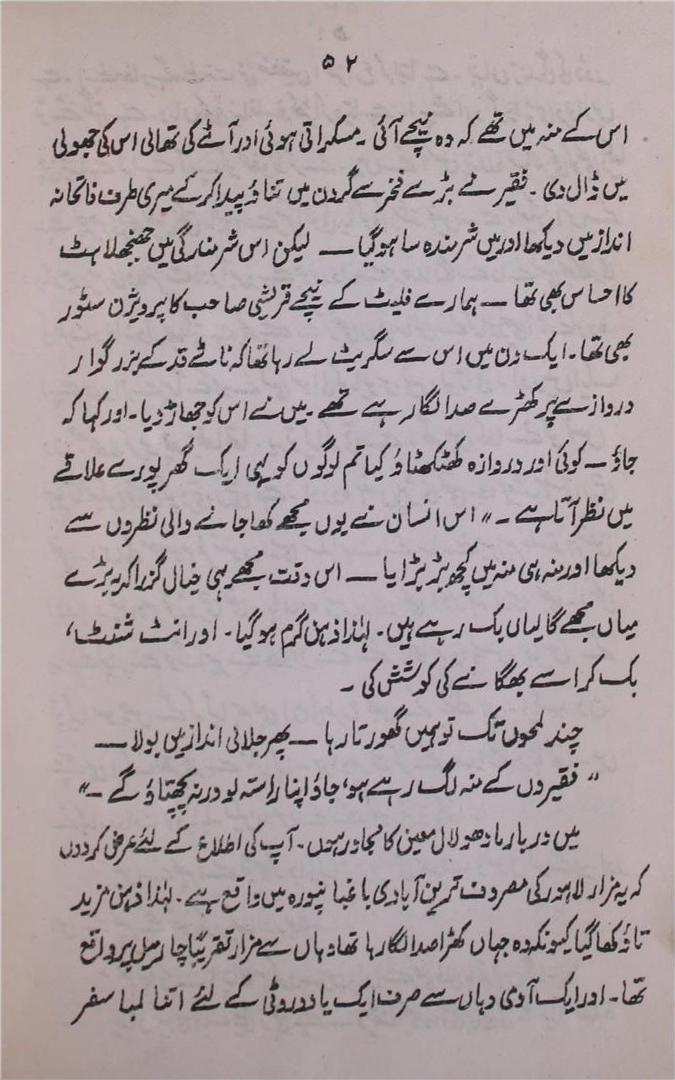 ۵۲
اس کے منہ میں تھے کہ وہ نیچے آئی ۔ مسکراتی ہوئی اور آٹے کی تھالی اس کی جھولی
میں ڈال دی ۔ فقیر نے بڑے فخر سے گردن میں تناؤ پیدا کر کے میری طرف فاتحانہ
انداز میں دیکھا اور میں شرمندہ سا ہو گیا ــ لیکن اس شرمندگی میں جھنجھلاہٹ
کا احساس بھی تھا ــ ہمارے فلیٹ کے نیچے قریشی صاحب کا پرویژن سٹور
بھی تھا ۔ ایک دن میں اس سے سگریٹ لے رہا تھا کہ ناٹے قد کے بزرگوار
دروازے پر کھڑے صدا لگا رہے تھے ۔ میں نے اس کو جھاڑ دیا ۔ اور کہا کہ
جاؤ ــ کوئی اور دروازہ کھٹکھٹاؤ کیا تم لوگوں کو یہی ایک گھر پورے علاقے
میں نظر آتا ہے ۔" اس انسان نے یوں مجھے کھا جانے والی نظروں سے
دیکھا اور منہ ہی منہ میں کچھ بڑبڑایا ــ اس وقت مجھے یہی خیال گزرا کہ بڑے
میاں مجھے گالیاں بک رہے ہیں ۔ لہٰذا ذہن گرم ہو گیا ۔ اور انٹ شنٹ ،
بک کر اسے بھگانے کی کوشش کی ۔
چند لمحوں تک تو ہمیں گھورتا رہا ــ پھر جلالی انداز میں بولا ــ
" فقیروں کے منہ لگ رہے ہو، جاؤ اپنا راستہ لو ورنہ پچھتاؤ گے ۔"
میں دربار مادھو لال معین کا مجاور ہوں ۔ آپ کی اطلاع کے لئے عرض کر دوں
کہ یہ مزار لاہور کی مصروف ترین آبادی باغبانپورہ میں واقع ہے ۔ لہٰذا ذہن مزید
تاؤ کھا گیا کیونکہ وہ جہاں کھڑا صدا لگا رہا تھا وہاں سے مزار تقریباً چار میل پر واقع
تھا ۔ اور ایک آدمی وہاں سے صرف ایک یا دو روٹی کے لئے اتنا لمبا سفر